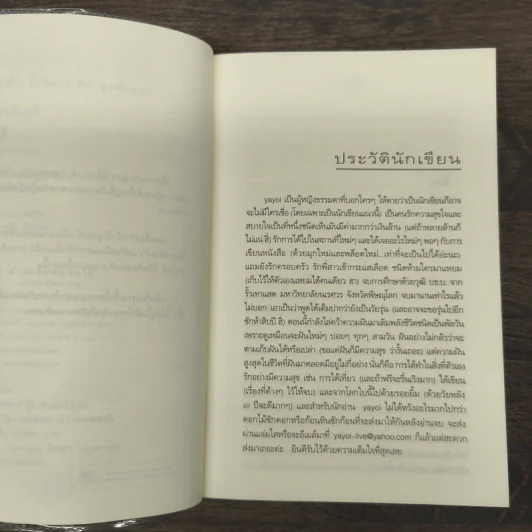 ประวัตินักเขียน
yayoi เป็นผู้หญิงธรรมดาที่บอกใครๆ ให้ตายว่าเป็นนักเขียนก็อาจ
จะไม่มีใครเชื่อ (โดยเฉพาะเป็นนักเขียนแนวนี้) เป็นคนรักความสุขใจและ
สบายใจเป็นที่หนึ่งชนิดเห็นมันมีค่ามากกว่าเงินล้าน (แต่ถ้าหลายล้านก็
ไม่แน่ ฮี่) รักการได้ไปในสถานที่ใหม่ๆ และได้เจออะไรใหม่ๆ พอๆ กับการ
เขียนหนังสือ (ด้วยมุกใหม่และพล็อตใหม่..เท่าที่จะเป็นไปได้อ่ะนะ)
แถมยังรักครอบครัว รักพี่สาวเข้ากระแสเลือด ชนิดห้ามใครมาแหยม
(เก็บไว้ให้ตัวเองแหยมได้คนเดียว ฮา) จบการศึกษาด้วยวุฒิ บธ.บ. จาก
รั้วเทาแสด มหาวิทยาลัยนเรศวร จังหวัดพิษณุโลก จบมานานเท่าไรแล้ว
ไม่บอก เอาเป็นว่าพูดได้เต็มปากว่ายังเป็นวัยรุ่น (และอาจจะขอรุ่นไปอีก
ซักห้าสิบปี ฮี่) ตอนนี้กำลังไล่คว้าความฝันมาเติมพลังชีวิตชนิดเป็นพัลวัน
เพราะดูเหมือนจะฝันใหม่ๆ บ่อยๆ ทุกๆ สามวัน ฝันอย่างไม่กลัวว่าจะ
ตามเก็บฝันได้หรือเปล่า (ขอแค่ฝันก็มีความสุข ว่างั้นเถอะ) แต่ความฝัน
สูงสุดในชีวิตที่ฝันมาตลอดมีอยู่ไม่กี่อย่าง นั่นก็คือ การได้ทำในสิ่งที่ตัวเอง
รักอย่างมีความสุข เช่น การได้เที่ยว (และถ้าฟรีจะรื่นเริงมาก) ได้เขียน
(เรื่องที่ค้างๆ ไว้ให้จบ) และจากโลกใบนี้ไปด้วยรอยยิ้ม (ด้วยวัยหลัง
๘๐ ปีจะดีมากๆ) และสำหรับนักอ่าน yayoi ไม่ได้หวังอะไรมากไปกว่า
ดอกไม้ซักดอกหรือก้อนหินซักก้อนที่จะส่งมาให้กันหลังอ่านจบ จะส่ง
ผ่านแจ่มใสหรือจะอีเมล์มาที่ yayoi-live@yahoo.com ก็แล้วแต่สะดวก
ส่งมาเถอะค่ะ ยินดีรับไว้ด้วยความเต็มใจที่สุดเลย